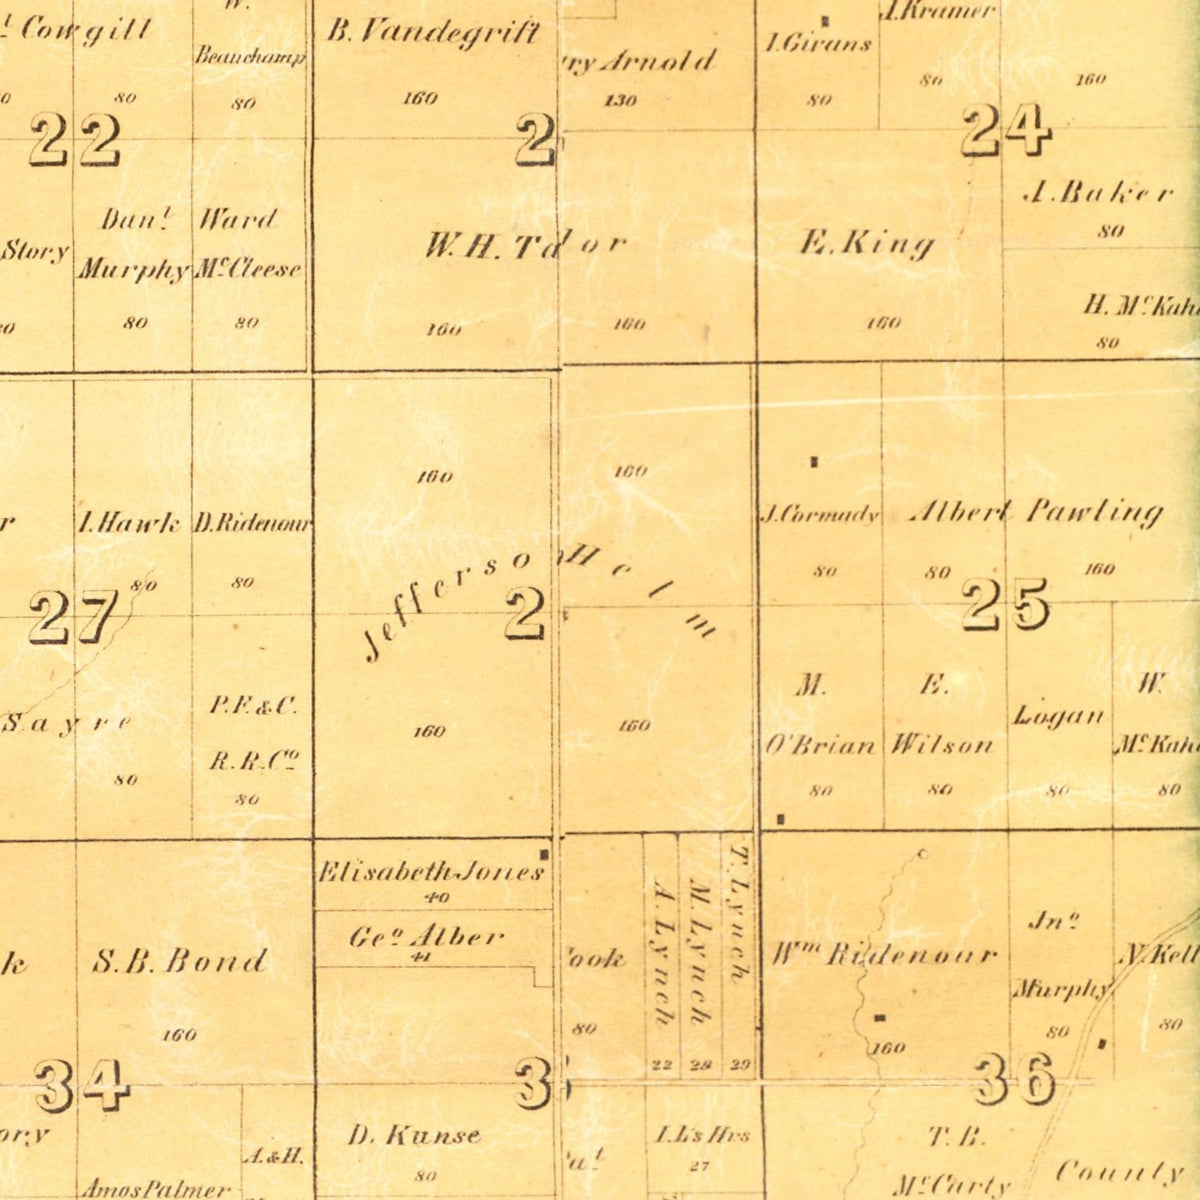 W.
t Cowgill
Beauchamp
80
80
B. Vandegrift
160
ry Arnold
130
I. Girans
80
J. Kramer
80
160
22
2
24
Story
Danl.
Murphy
80
Ward
McCleese
80
W. H. T
or
160
160
E. King
160
J. Baker
80
H. McKah
80
r
I. Hawk
80
D. Ridenour
80
160
160
Jefferso
Helm
J. Cormady
80
Albert Pawling
80
160
27
2
25
Sayre
80
P. F. & C.
R. R. Co.
80
160
160
M.
O'Brian
80
E.
Wilson
80
Logan
80
W.
McKah
80
k
S. B. Bond
160
Elisabeth Jones
40
Geo. Alber
41
ook
80
A. Lynch
22
M. Lynch
28
T. Lynch
29
Wm Ridenour
160
Jno.
Murphy
80
N. Kell
80
34
3
36
ory
Amos Palmer
A. & H.
D. Kunse
80
I. L's Hrs
27
T. B.
McCarty
County